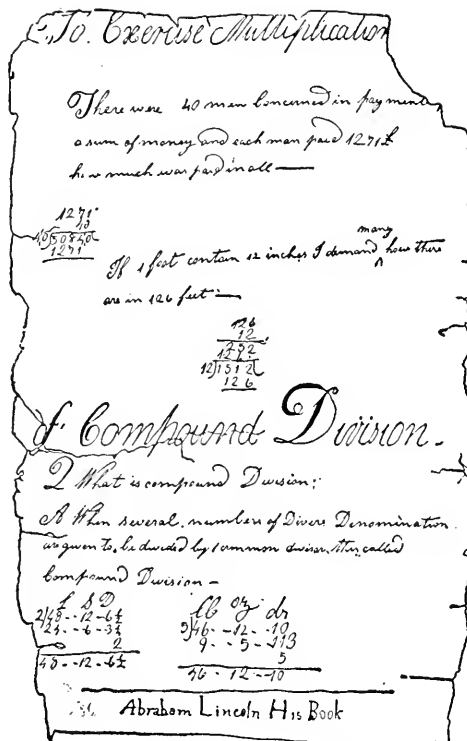 To Exercise Multiplication
There were 40 men Concerned in payment
a sum of money and each man paid 1271£
how much was paid in all —
1271
40
40)50840
1271
many
If 1 foot contain 12 inches I demand ^ how there
are in 126 feet —
126
12
252
12)1512
126
of Compound Division -
Q What is compound Division;
A When several numbers of Divers Denomination
are given to be divided by 1 common divisor called
Compound Division -
£ S D
2)48--12-6½
24--6-3¼
2
48--12-6½
lb oz dr
5)46--12--10
9--5--113
5
46-12-10
Abraham Lincoln His Book